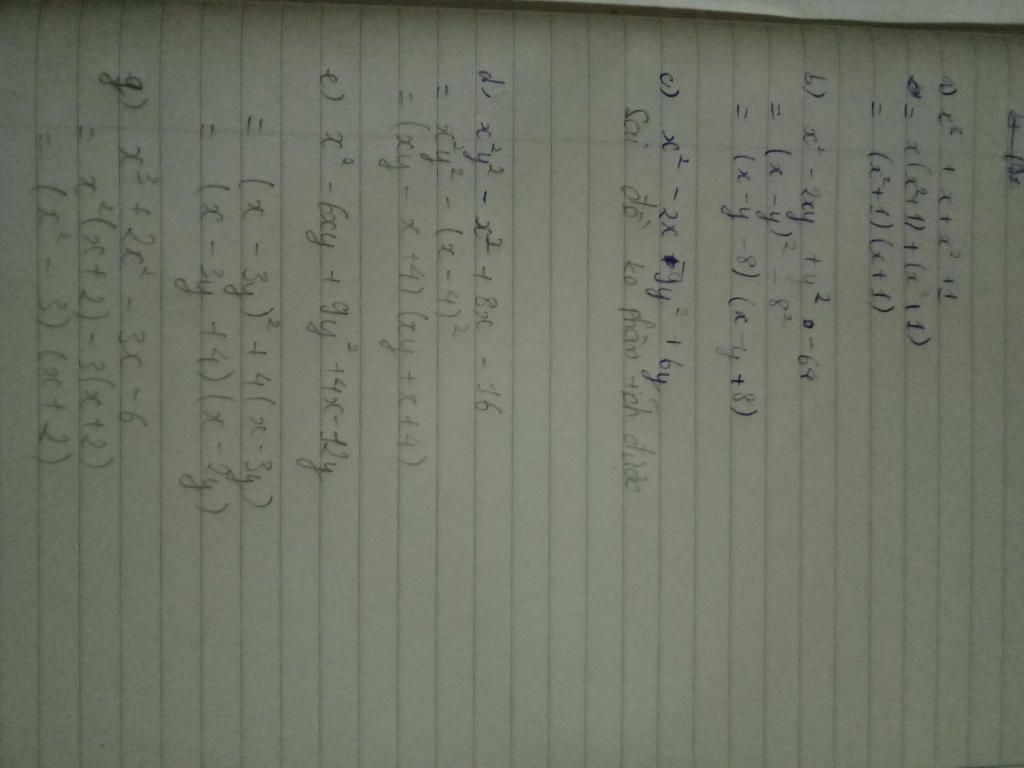 a) x³ + x + x² + 1
= x(x²+1) + (x²+1)
= (x²+1)(x+1)
b) x² - 2xy + y² - 64
= (x - y)² - 8²
= (x - y - 8) (x - y + 8)
c) x² - 2x - 9y² + 6y
Sai đề ko phân tích được
d) x²y² - x² + 8x - 16
= x²y² - (x - 4)²
= (xy - x + 4) (xy + x + 4)
e) x² - 6xy + 9y² + 4x - 12y
= (x - 3y)² + 4(x - 3y)
= (x - 3y + 4) (x - 3y)
g) x³ + 2x² - 3x - 6
= x²(x + 2) - 3(x + 2)
= (x² - 3) (x + 2)